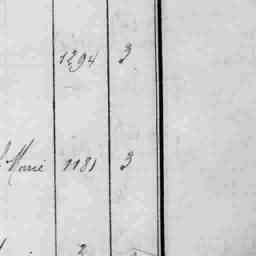 1294 3
Marie 1181 3